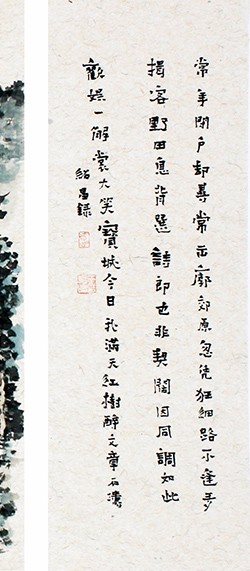 常年閉户却尋常出廓郊原忽狂細路不逢多
揖客野田息背選詩郎也非契闊因同調如此
歡娱一解裳大笑寶城今日我滿天紅樹醉文章石濤
紹昌錄